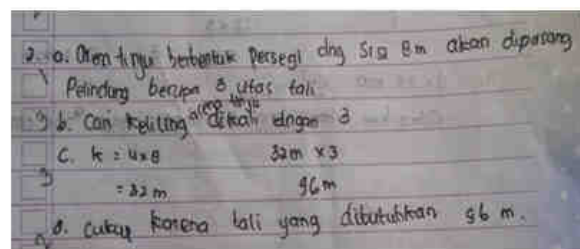 2. a. Aren tinju berbentuk Persegi dng Sisi 8m akan dipasang
Pelindung berupa 3 utas tali
b. Cari keliling arena tinju dikali dngan 3
C. k = 4 x 8 32m x 3
= 32 m 96 m
d. cukup karena tali yang dibutuhkan 96 m.